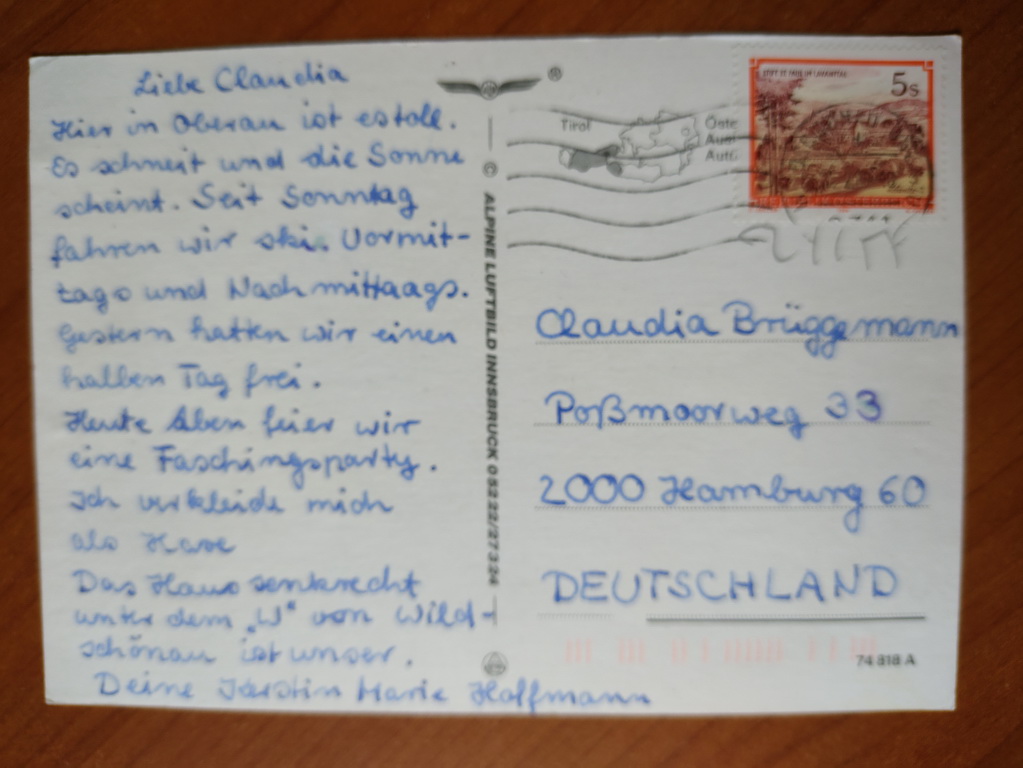 Liebe Claudia
Hier in Oberau ist es toll.
Es schneit und die Sonne
scheint. Seit Sonntag
fahren wir ski. Vormit-
tags und Nachmittaags.
Gestern hatten wir einen
halben Tag frei.
Heute Aben feier wir
eine Faschingsparty.
Ich verkleide mich
als Hase
Das Haus senkrecht
unter dem „W“ von Wild-
schönau ist unser.
Deine Kerstin Marie Hoffmann
®
© ALPINE LUFTBILD INNSBRUCK 0 52 22/27 3 24
Tirol
Öste
Aus
Auto
5s
Claudia Brüggemann
Poßmoorweg 33
2000 Hamburg 60
DEUTSCHLAND
74 818 A